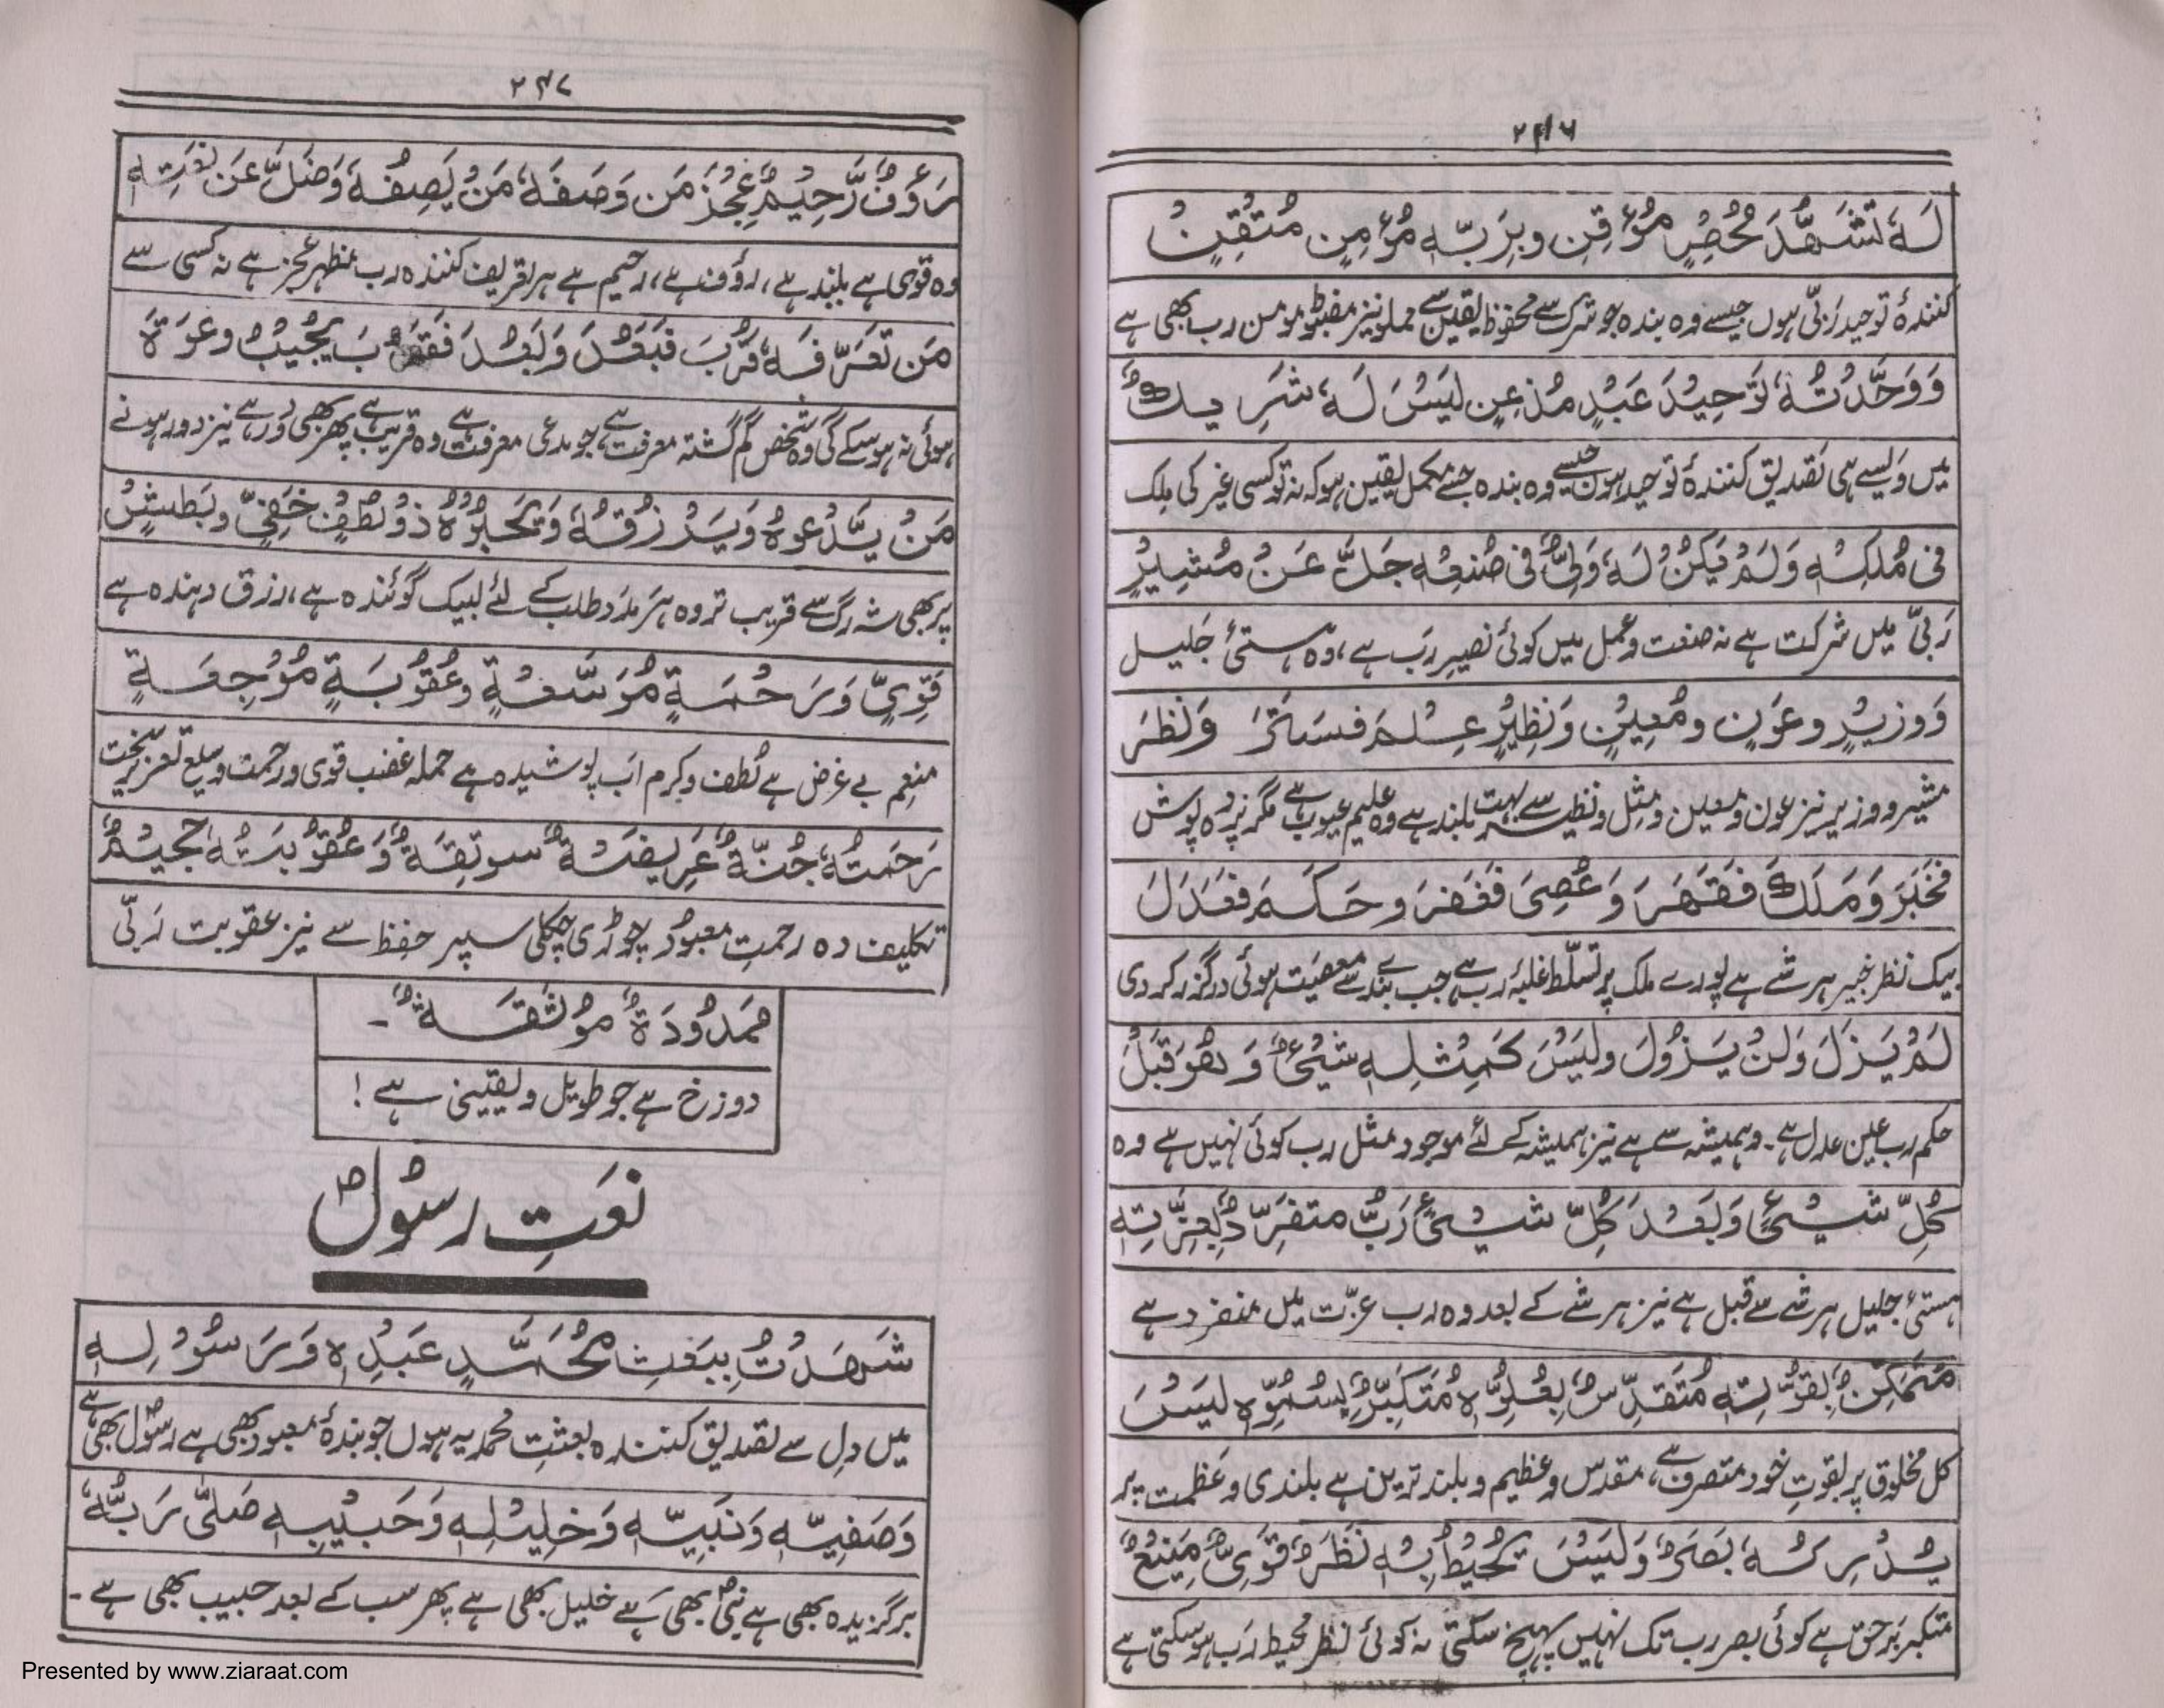 ۲۴۶
لَهٗ تَشَهُّدَ مُخْصٍ مُؤْقِنٍ وبِرَبِّهٖ مُؤْمِنٍ مُتْقِنٍ
کنندۂ توحیدِ رَبّی ہوں جیسے وہ بندہ جو شرک سے محفوظ یقین سے مملو نیز مضبوط مومن رب بھی ہے
وَوَحَّدْتُهٗ تَوْحِيْدَ عَبْدٍ مُذْعِنٍ لَيْسَ لَهٗ شَرِيكٌ
میں ویسے ہی تصدیق کنندۂ توحید ہوں جیسے وہ بندہ جسے مکمل یقین ہو کہ نہ تو کسی غیر کی ملک
فِى مُلْكِهٖ وَلَمْ يَكُنْ لَهٗ وَلِيٌّ فِى صُنْعِهٖ جَلَّ عَنْ مُشِيْرٍ
رَبّی میں شرکت ہے نہ صنعت و عمل میں کوئی نصیرِ رَب ہے، وہ ہستیٔ جَلیل
وَوزيرٍ وعَوْنٍ ومُعِيْنٍ وَنَظِيْرٍ عِلْمَ فَسَتَرَ وَنَظَرَ
مشیر و وزیر نیز عون و معین و مثل و نظیر سے بہت بلند ہے وہ علیم عیوب ہے مگر پردہ پوش
فَخَبَرَ وَمَلَكَ فَقَهَرَ وَعُصِىَ فَغَفَرَ وحَكَمَ فَعَدَلَ
بیک نظر خبیر ہر شے ہے پورے ملک پر تسلّط غلبۂ رب ہے، جب بندے سے معصیت ہوئی درگزر کر دی
لَمْ يَزَلْ وَلَنْ يَزُوْلَ ولَيْسَ كَمِثْلِهٖ شَيْئٌ وَهُوَ قَبْلَ
حکمِ رب عین عدل ہے۔ وہ ہمیشہ سے ہے نیز ہمیشہ کے لئے موجود مثل رب کوئی نہیں ہے وہ
كُلِّ شَيْئٍ وَبَعْدَ كُلِّ شَيْئٍ رَبٌّ متفَرِّدٌ بِعِزَّتِهٖ
ہستیٔ جلیل ہر شے سے قبل ہے نیز ہر شے کے بعد وہ رب عزّت میں منفرد ہے
مُتَمَكِّنٌ بِقُوَّتِهٖ مُتَقَدِّسٌ بِعُلُوِّهٖ مُتَكَبِّرٌ بِسُمُوِّهٖ لَيْسَ
کل مخلوق پر بقوتِ خود متصرف ہے، مقدس و عظیم و بلند ترین ہے بلندی و عَظمت پر
يُدْرِكُهٗ بَصَرٌ وَلَيْسَ يُحِيْطُ بِهٖ نَظَرٌ قَوِىٌّ مَنِيْعٌ
متکبر برحق ہے کوئی بصر رب تک نہیں پہنچ سکتی نہ کوئی نظر محیط رَب ہو سکتی ہے
۲۴۷
رَءُوْفٌ رَّحِيْمٌ عَجُزَ مَن وَصَفَهٗ مَنْ يَصِفُهٗ وَضَلَّ عَنْ نَعْتِهٖ
وہ قوی ہے بلند ہے، رؤف ہے، رحیم ہے ہر تعریف کنندہ رب مظہر عجز ہے نہ کسی سے
مَن تَعَرَّفَهٗ قَرُبَ فَبَعُدَ وَبَعُدَ فَقَرُبَ يُجِيْبُ دعوَةَ
ہوئی نہ ہو سکے گی وہ شخص گم گشتہ معرفت ہے جو مدعی معرفت ہے وہ قریب ہے پھر بھی دُور ہے نیز دور ہونے
مَنْ يَّدْعُوهُ وَيَرْزُقُهٗ وَيَحْبُوْهُ ذُوْ لُطْفٍ خَفِيٍّ وبَطْشٍ
پر بھی شہ رگ سے قریب تر وہ ہر مدد طلب کے لئے لبیک گوئندہ ہے، رزق دہندہ ہے
قَوِيٍّ وَرَحْمَةٍ مُوَسَّعَةٍ وعُقُوْبَةٍ مُوْجِعَةٍ
منعِم بے غرض ہے لُطف و کرم اَب پوشیدہ ہے حملہ غضب قوی و رحمت وسیع تعزیر سخت
رَحمَتُهٗ جُنَّةٌ عَرِيضَةٌ مونِقَةٌ وَعُقُوْبَتُهٗ جَحِيْمٌ
تکلیف دہ رحمتِ معبود چوڑی چکلی سپرِ حفظ ہے نیز عقوبت رَبّی
مَمْدُوْدَةٌ مُوْثَقَةٌ ۔
دوزخ ہے جو طویل و یقینی ہے !
نعَتِ رسُولؐ
شَهِدْتُ بِبَعْثِ مُحَمَّدٍ عَبْدِهٖ وَرَسُوْلِهٖ
میں دِل سے تصدیق کنندہ بعثتِ محمدیہ ہوں جو بندۂ معبود بھی ہے رسولؐ بھی ہے
وَصَفِيِّهٖ وَنَبِيِّهٖ وَخَلِيْلِهٖ وَحَبِيْبِهٖ صَلّٰى رَبُّهٗ
برگزیدہ بھی ہے نبیؐ بھی ہے خلیل بھی ہے پھر سب کے بعد حبیب بھی ہے ۔
Presented by www.ziaraat.com